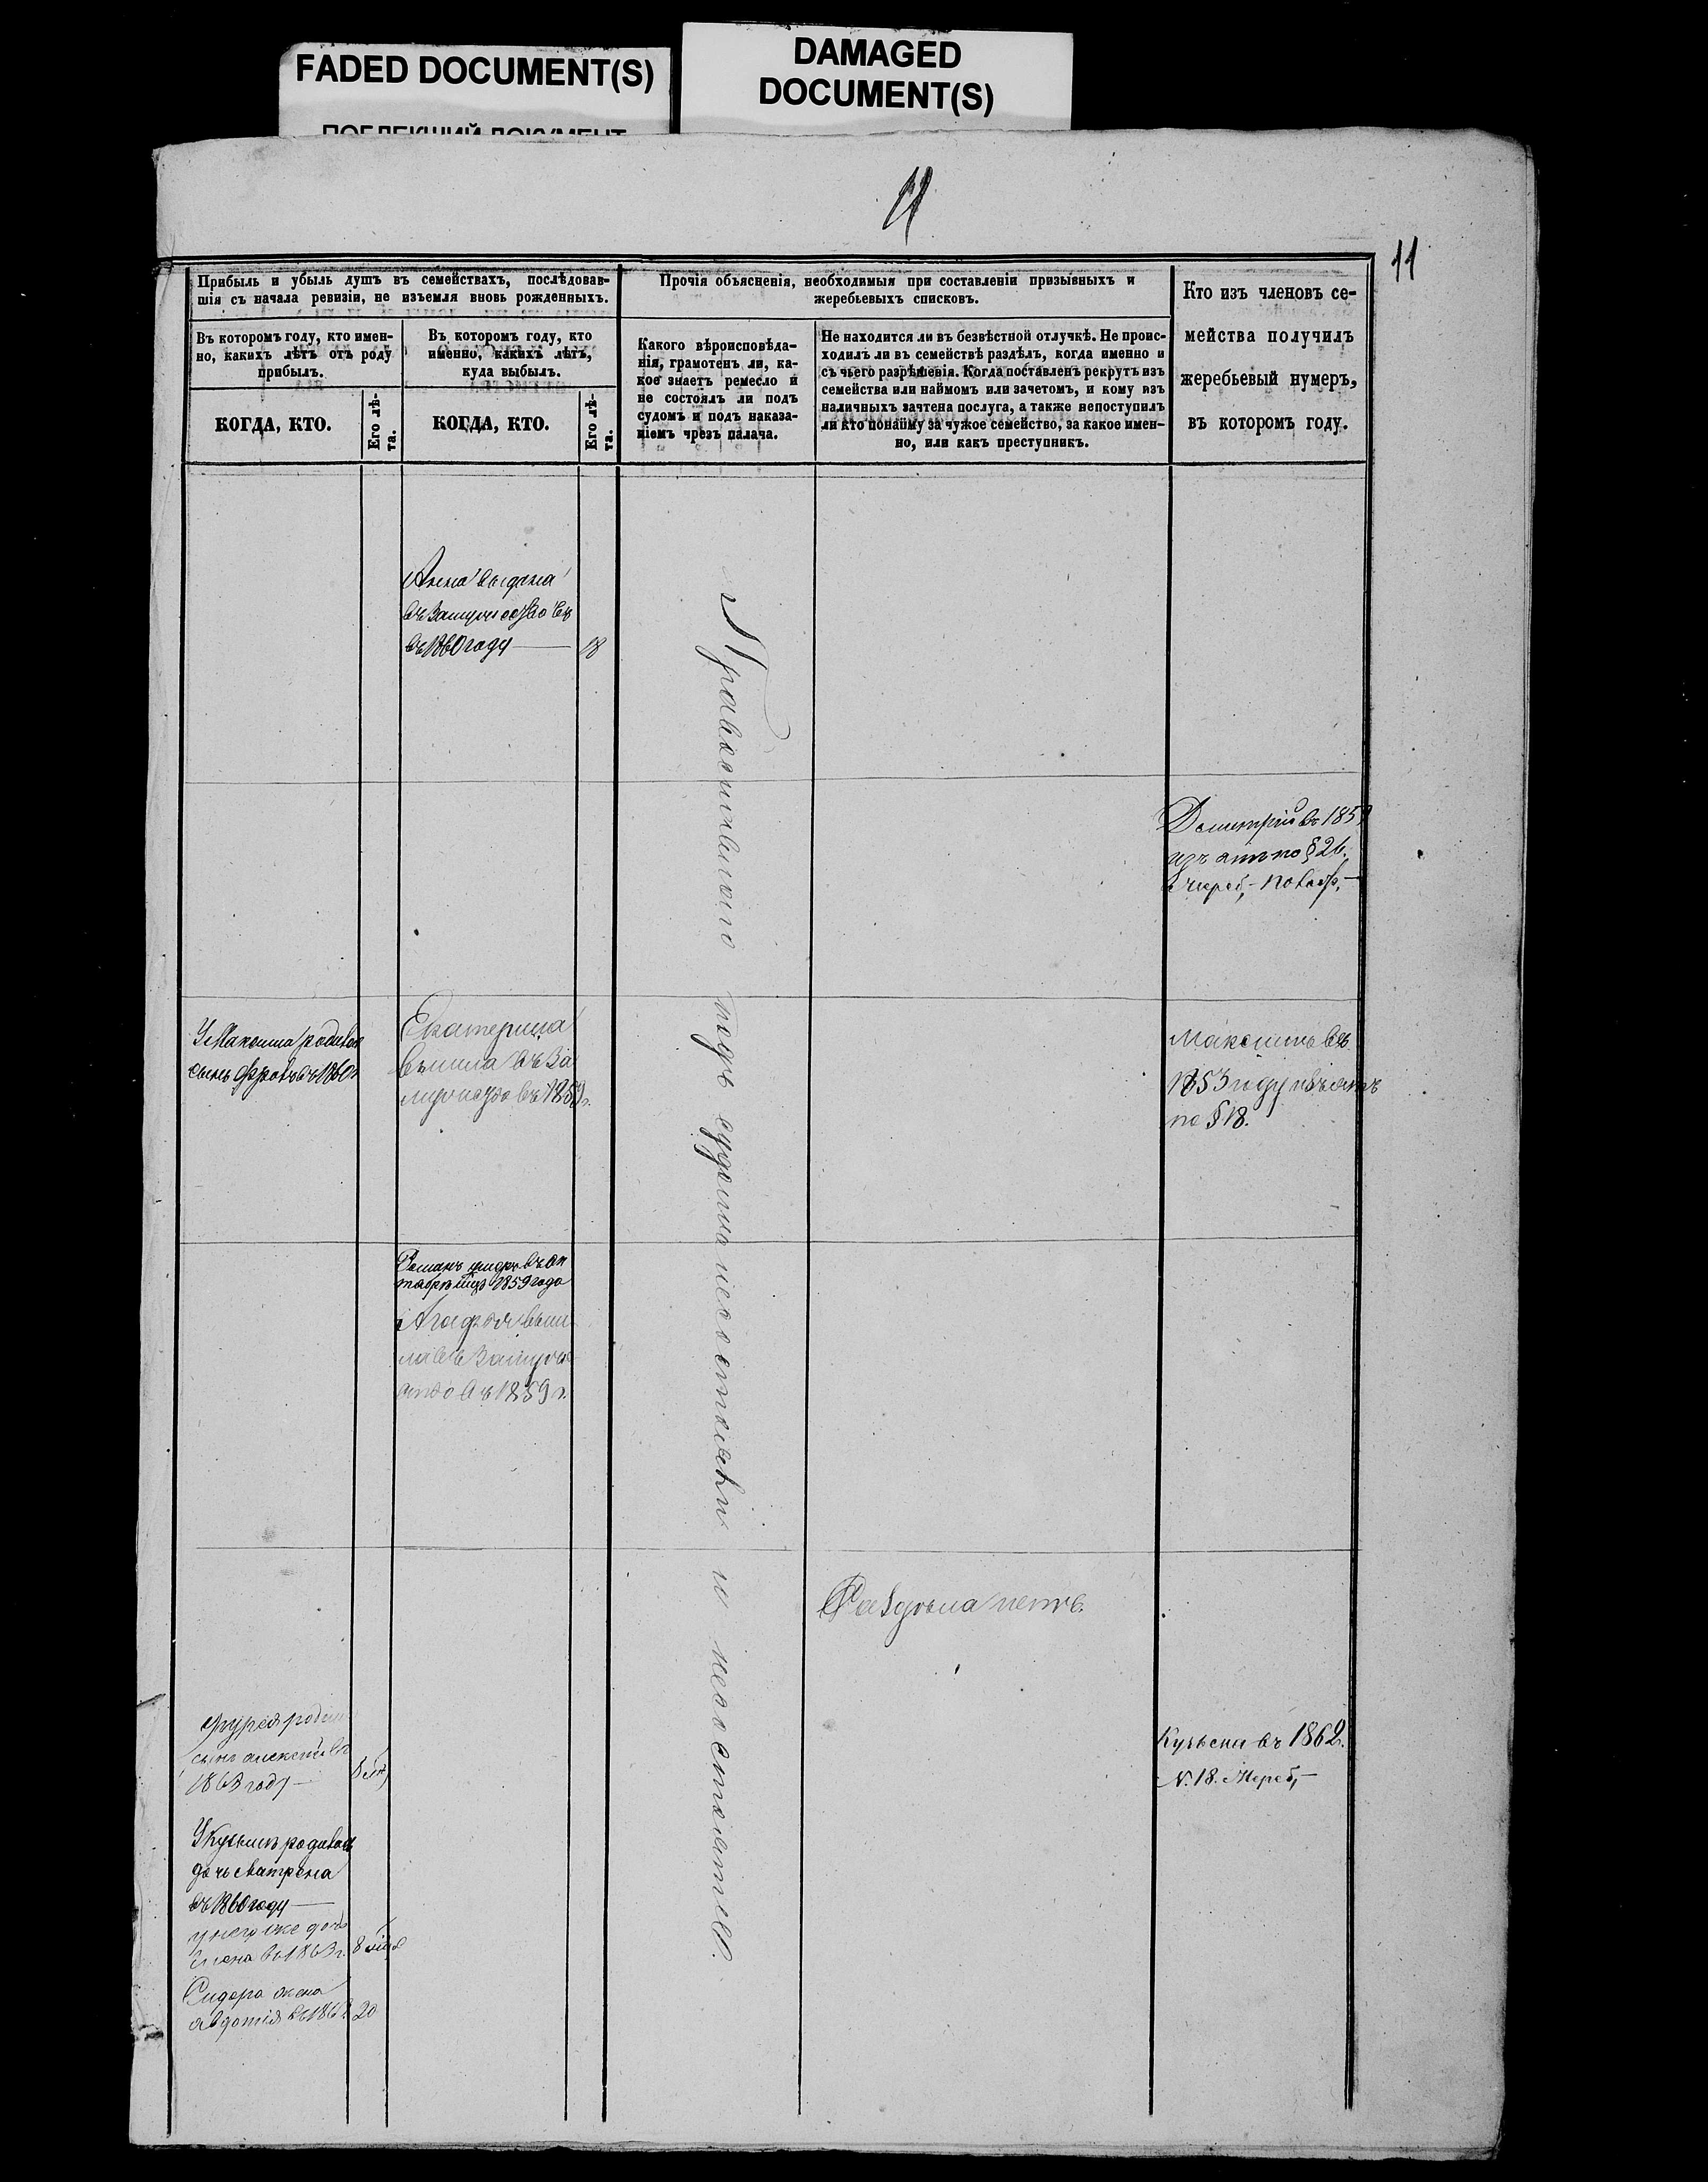 FADED DOCUMENT(S)
DAMAGED
DOCUMENT(S)
11
Прибыль и убыль душъ въ семействахъ, послѣдовав-
шія съ начала ревизіи, не изъемля вновь рожденныхъ.
Въ которомъ году, кто имен-
но, какихъ лѣтъ отъ роду
прибылъ.
КОГДА, КТО.
Его лѣ-
та.
Въ которомъ году, кто
именно, какихъ лѣтъ,
куда выбылъ.
КОГДА, КТО.
Его лѣ-
та.
Прочія объясненія, необходимыя при составленіи призывныхъ и
жеребьевыхъ списковъ.
Какого вѣроисповѣда-
нія, грамотенъ ли, ка-
кое знаетъ ремесло и
не состоялъ ли подъ
судомъ и подъ наказа-
ніемъ чрезъ палача.
Не находится ли въ безвѣстной отлучкѣ. Не проис-
ходилъ ли въ семействѣ раздѣлъ, когда именно и
съ чьего разрѣшенія. Когда поставленъ рекрутъ изъ
семейства или наймомъ или зачетомъ, и кому изъ
наличныхъ зачтена послуга, а также непоступилъ
ли кто понайму за чужое семейство, за какое имен-
но, или какъ преступникъ.
Кто изъ членовъ се-
мейства получилъ
жеребьевый нумеръ,
въ которомъ году.
Анна выдана
въ замужество
въ 1860 году 18
Дмитрій въ 185
по § 26.
У Максима родился
сынъ въ 1860
Екатерина
вышла въ за
мужество въ 1859 г.
Максимъ въ
1853 году
по § 18.
Романъ умеръ въ ок
тябрѣ 1859 года
Агафья выш
ла въ замуже
ство въ 1859 г.
Православнаго подъ судомъ несостояли и несостоятъ.
Раздѣла нетъ.
родил
сынъ алексѣй въ
1863 году
Кузьми въ 1862.
N. 18. Жереб,
У Кузьмы родилась
дочь Матрена
въ 1860 году
у него же дочь
Елена въ 1863 г. 8
Сидора жена
авдотія въ 1863 20